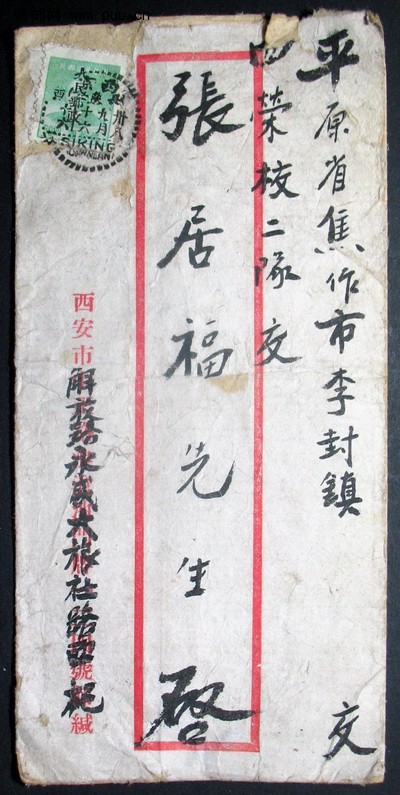 平原省焦作市李封鎮 交
四榮校二隊交
張居福先生 啓
西安市解放路永成大旅社路 緘
SIKING